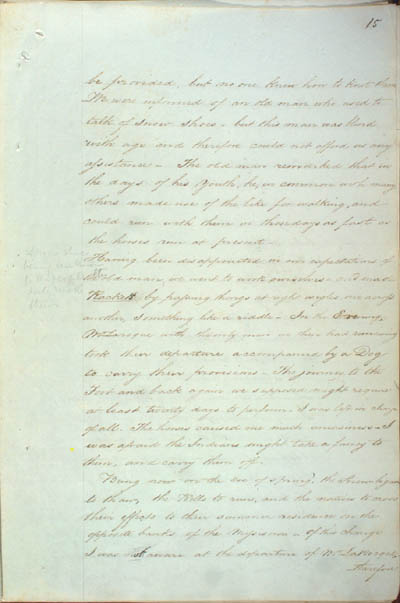 15
be provided, but no one knew how to knot them
We were informed of an old man who used to
talk of Snow Shoes - but this man was blind
with age and therefore could not afford us any
assistance - The old man remarked that in
the days of his Youth, he, in common with many
others made use of the like for walking, and
could run with them in those days as fast as
the horses run at present -
Having been disappointed in our expectations of
the old man, we went to work ourselves - and made
Rackets by passing thongs at right angles one across
another something like a riddle - In the Evening
Mr. Laroque with the only man we then had remaining
took their departure accompanied by a Dog
to carry their provisions - The journey to the
Fort and back again we supposed might require
at least twenty days to perform. I was left in charge
of all. The horses caused me much uneasiness - I
was afraid the Indians might take a fancy to
them, and carry them off.
Being now on the eve of spring, the snow began
to thaw, the Rills to run, and the natives to cross
their effects to their summer residence on the
opposite banks of the Missisourie - of this change
I was not aware at the departure of Mr. LaRoque,
therefore